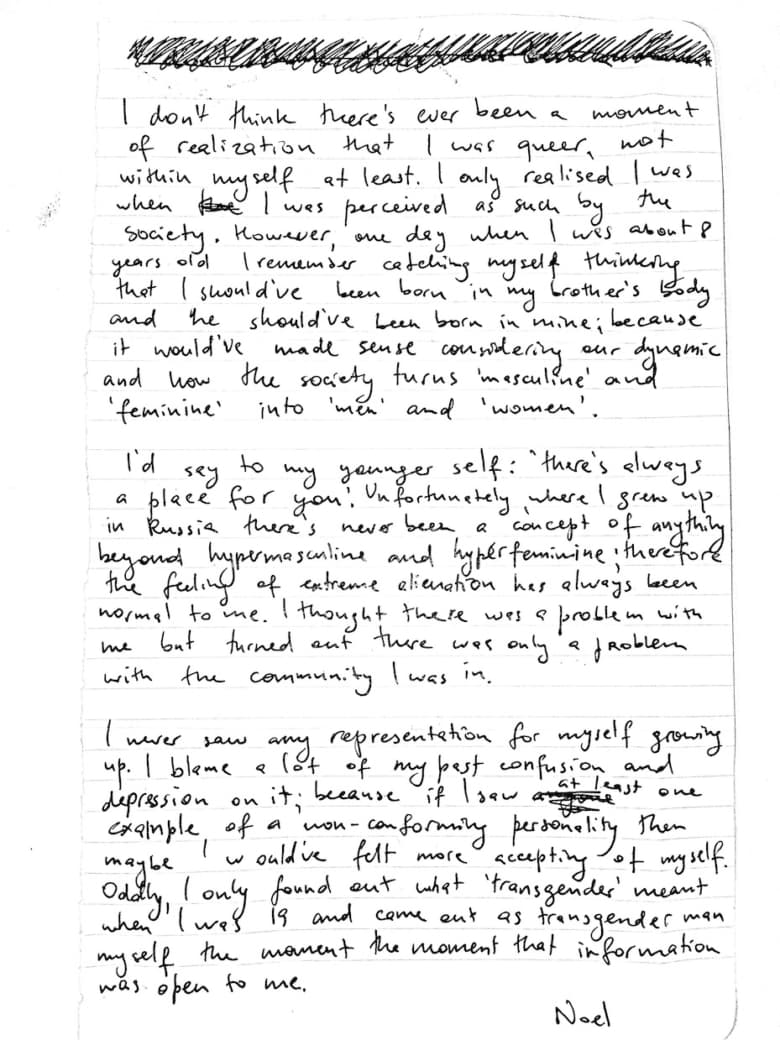 I don't think there's ever been a moment
of realization that I was queer, not
within myself at least. I only realised I was
when I was perceived as such by the
society. However, one day when I was about 8
years old I remember catching myself thinking
that I should've been born in my brother's body
and he should've been born in mine; because
it would've made sense considering our dynamic
and how the society turns 'masculine' and
'feminine' into 'men' and 'women'.
I'd say to my younger self: "there's always
a place for you". Unfortunately, where I grew up
in Russia there's never been a concept of anything
beyond hypermasculine and hyperfeminine; therefore
the feeling of extreme alienation has always been
normal to me. I thought there was a problem with
me but turned out there was only a problem
with the community I was in.
I never saw any representation for myself growing
up. I blame a lot of my past confusion and
depression on it; because if I saw at least one
example of a non-conforming personality then
maybe I would've felt more accepting of myself.
Oddly, I only found out what 'transgender' meant
when I was 19 and came out as transgender man
myself the moment the moment that information
was open to me.
Noel